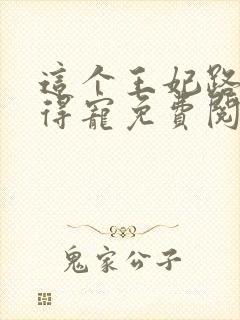 這个王妃路
得寵免費閱
鬼家公子